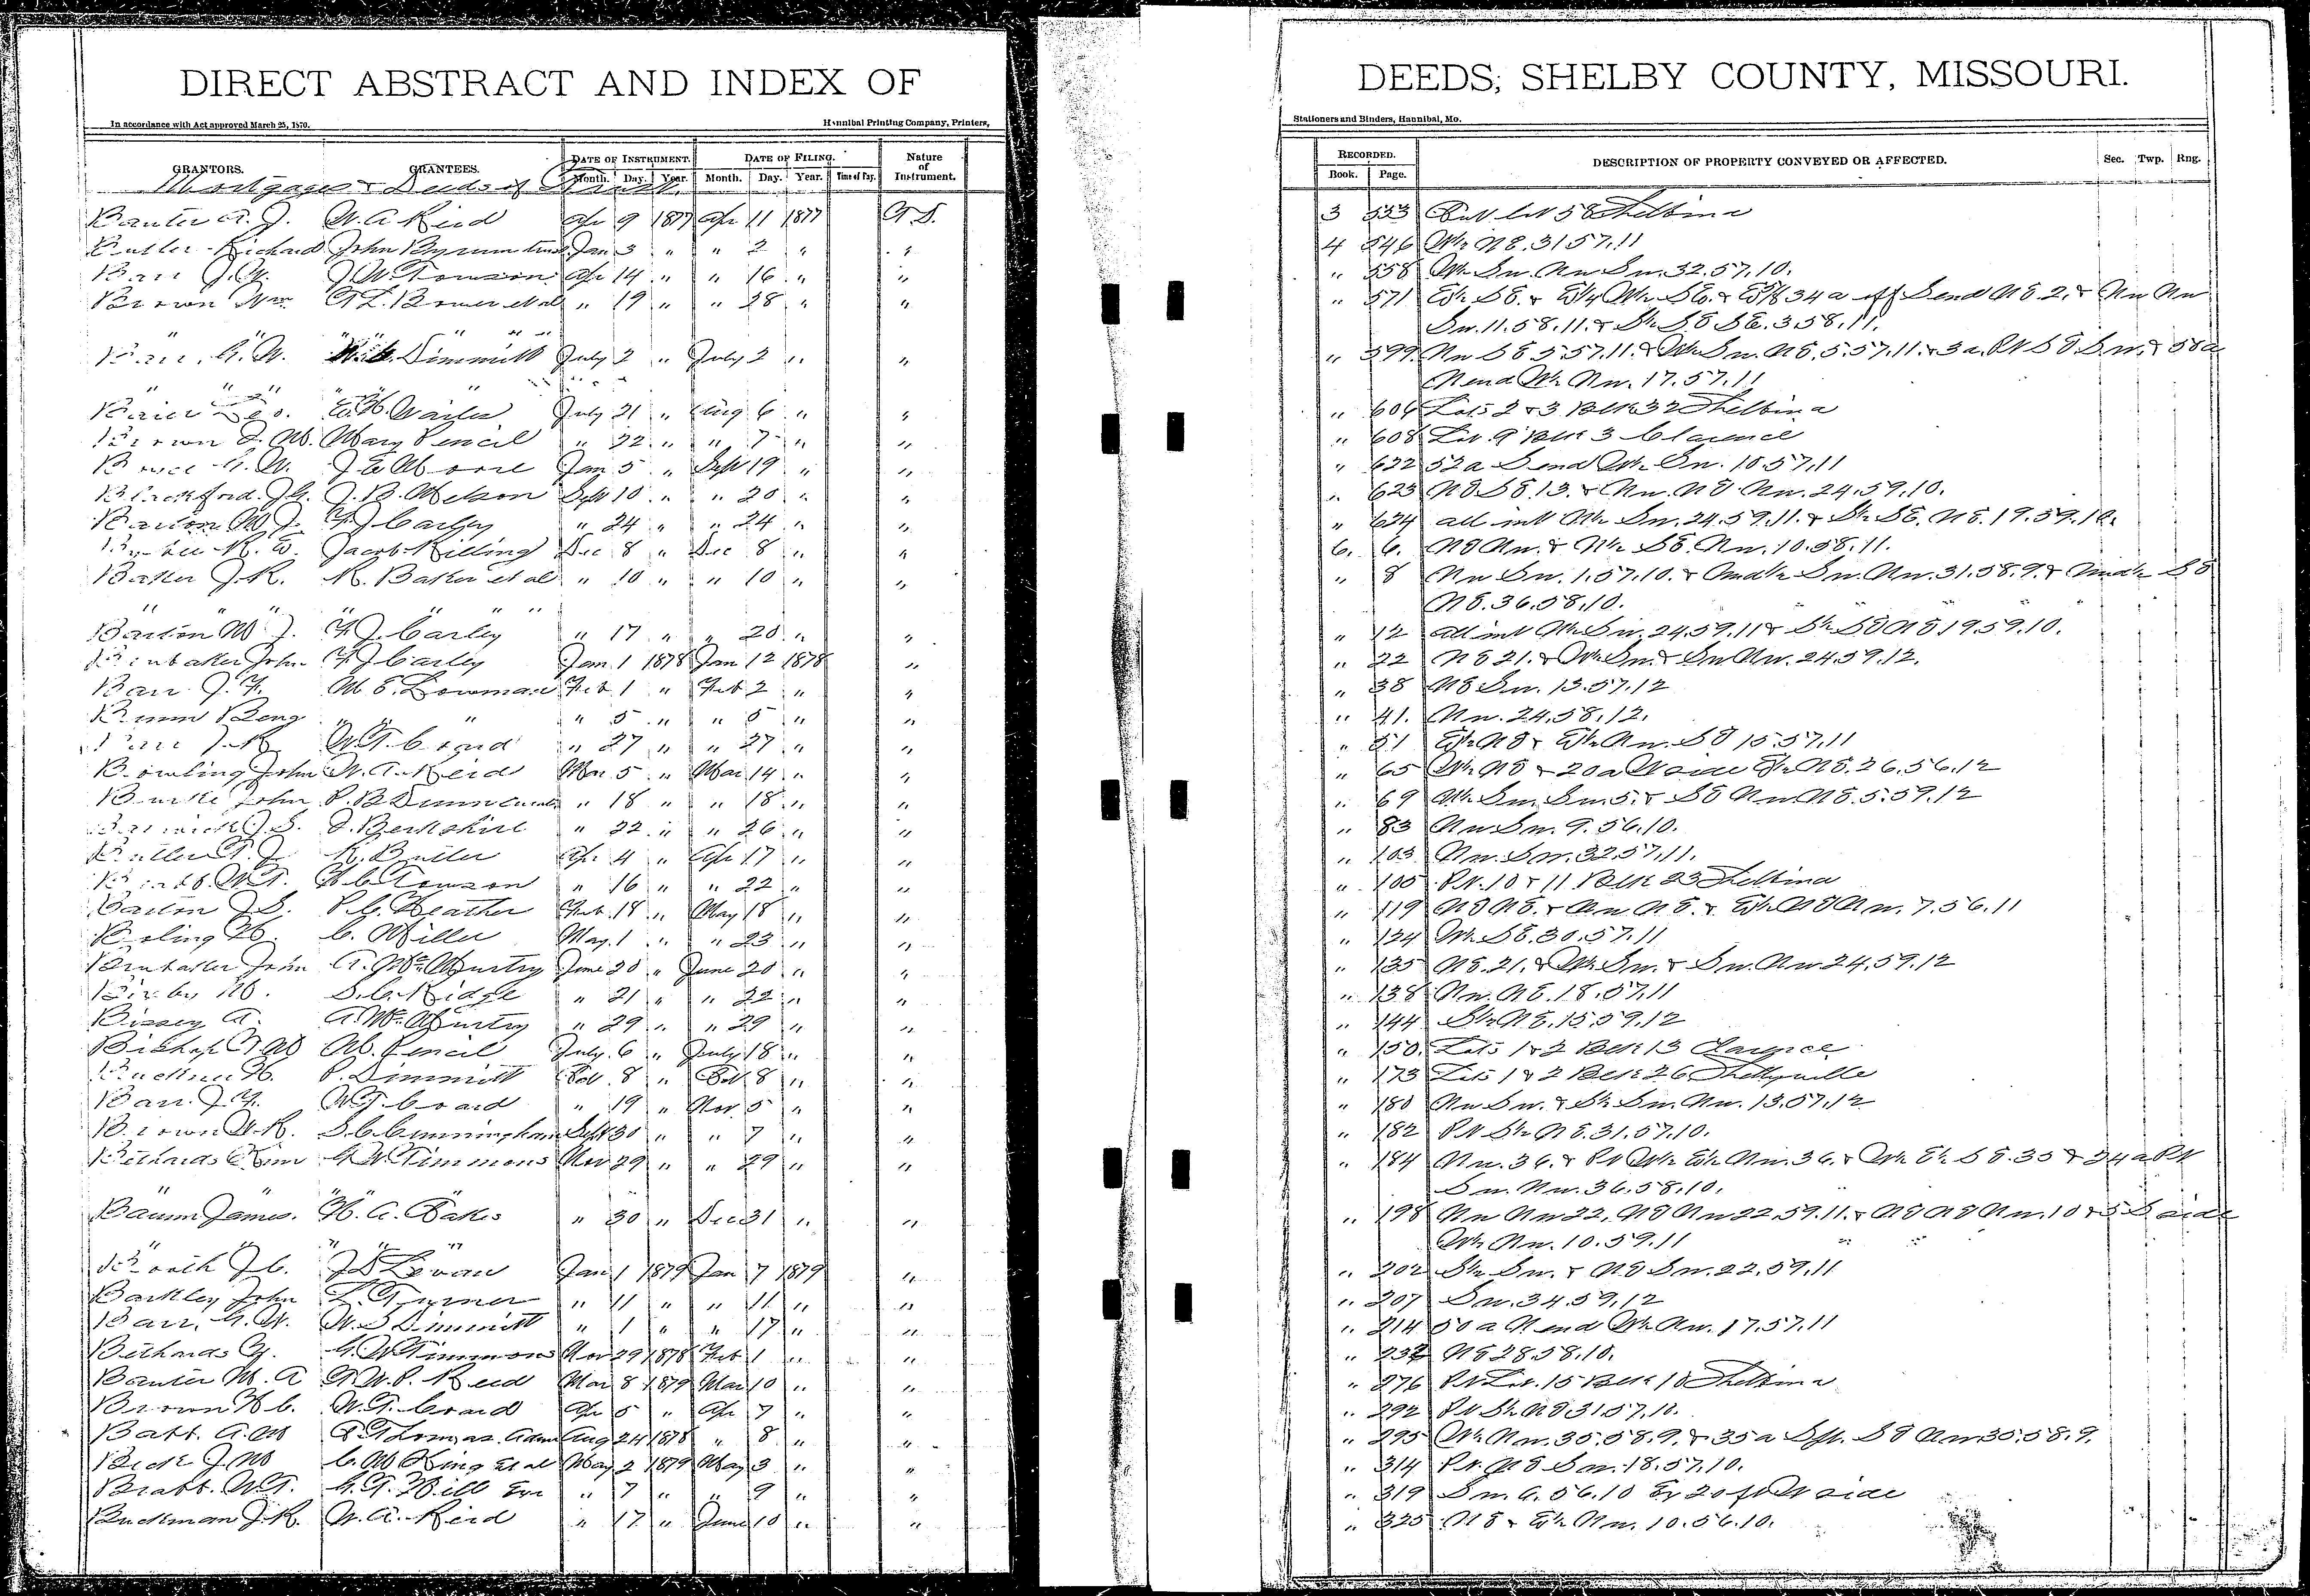 DIRECT ABSTRACT AND INDEX OF
In accordance with Act approved March 25, 1870. Hannibal Printing Company, Printers,
GRANTORS. GRANTEES. DATE OF INSTRUMENT. DATE OF FILING. Nature of Instrument.
Month. Day. Year. Month. Day. Year. Time of Day.
Mortgages & Deeds of Trust
Banter A. J. W. A. Reid Apr 9 1877 Apr 11 1877
Butler Richard John Byrum Jan 3 " " 2 " "
Barr J. W. Towson Apr 14 " " 16 " "
Brown Wm. Bower et al " 19 " " 28 " "
" " " " " "
Barr, G. W. Dimmitt July 2 " July 2 " "
" " " "
Geo. Wailes July 21 " Aug 6 " "
Brown Mary Pencil " 22 " " 7 " "
G. W. J. E. Moore Jan 5 " Sept 19 " "
Blackford J. B. Nelson Sept 10 " " 20 " "
Barton M. J. F. J. Carley " 24 " " 24 " "
Jacob Killing Dec 8 " Dec 8 " "
Baker J. R. R. Baker et al " 10 " " 10 " "
" " " " " " "
Barton M. J. F. J. Carley " 17 " " 20 " "
John F. J. Carley Jan 1 1878 Jan 12 1878 "
Barr J. F. M. E. Lowman Feb 1 " Feb 2 " "
Benj " " " 5 " " 5 " "
W. T. Coard " 27 " " 27 " "
Bowling John W. A. Reid Mar 5 " Mar 14 " "
Burke John P. B. " 18 " " 18 " "
J. S. Berkshire " 22 " " 26 " "
Butler T. J. R. Butler Apr 4 " Apr 17 " "
W. T. Towson " 16 " " 22 " "
Barton J. S. P. C. Heather Feb 18 " May 18 " "
Boling C. Miller May 1 " " 23 " "
John A. McMurtry June 20 " June 20 " "
Bixby S. C. Ridge " 21 " " 22 " "
Bissey A. A. McMurtry " 29 " " 29 " "
Bishop M. Pencil July 6 " July 18 " "
Buckner H. P. Dimmitt Oct 8 " Oct 8 " "
Barr J. F. W. T. Coard " 19 " Nov 5 " "
Brown W. R. S. C. Cunningham Sept 30 " " 7 " "
Bethards G. W. Timmons Nov 29 " " 29 " "
" " " "
Baum James. H. A. Oakes " 30 " Dec 31 " "
" " " " "
Booth J. C. J. D. Levan Jan 1 1879 Jan 7 1879 "
Barkley John L. Turner " 11 " " 11 " "
Barr, G. W. W. S. Dimmitt " 1 " " 17 " "
Bethards G. W. Timmons Nov 29 1878 Feb 1 " "
Banter M. A. W. P. Reid Mar 8 1879 Mar 10 " "
Brown H. C. W. T. Coard Apr 5 " Apr 7 " "
Batt. A. M. Thomas Adm Aug 24 1878 " 8 " "
J. M. C. M. King et al May 2 1879 May 3 " "
Bratt. W. T. G. T. Hill Exr " 7 " " 9 " "
Buckman J. R. W. A. Reid " 17 " June 10 " "
DEEDS, SHELBY COUNTY, MISSOURI.
Stationers and Binders, Hannibal, Mo.
RECORDED. DESCRIPTION OF PROPERTY CONVEYED OR AFFECTED. Sec. Twp. Rng.
Book. Page.
3 533 Lot 58 Shelbina
4 546 W½ NE. 31.57.11
" 558 W½ Sw. Nw Sw. 32.57.10.
" 571 E½ SE. & W½ SE. & 34 a off S end NE. 2. & Nw Nw
Sw. 11.58.11. & S½ SE SE. 3.58.11.
" 599 Nw SE 5.57.11. & W½ Sw. NE. 5.57.11. & 3 a. Pt SE. Sw. & 58 a
N end W½ Nw. 17.57.11
" 606 Lots 2 & 3 Blk 32 Shelbina
" 608 Lot 9 Blk 3 Clarence
" 622 52 a S end W½ Sw. 10.57.11
" 623 NE SE. 13. & Nw. NE Nw. 24.59.10.
" 624 all int W½ Sw. 24.59.11. & S½ SE. NE. 19.59.10.
6. 6. NE Nw. & N½ SE. Nw. 10.58.11.
" 8 Nw Sw. 1.57.10. & Sw. Nw. 31.58.9. & SE
NE. 36.58.10.
" 12 all int W½ Sw. 24.59.11 & S½ SE NE. 19.59.10.
" 22 NE 21. & W½ Sw. & Sw Nw. 24.59.12.
" 38 NE Sw. 13.57.12
" 41. Nw. 24.58.12.
" 51 E½ NE & E½ Nw. SE 15.57.11
" 65 W½ NE & 20 a W side E½ NE. 26.56.12
" 69 W½ Sw. Sw. 5. & SE Nw NE. 5.59.12
" 83 Nw Sw. 9.56.10.
" 103 Nw. Sw. 32.57.11.
" 105 Pt. 10 & 11 Blk 23 Shelbina
" 119 NE NE. & Nw NE. & E½ NE Nw. 7.56.11
" 124 W½ SE. 30.57.11
" 135 NE. 21. & W½ Sw. & Sw. Nw 24.59.12
" 138 Nw. NE. 18.57.11
" 144 S½ NE. 15.59.12
" 150. Lots 1 & 2 Blk 13 Clarence
" 173 Lots 1 & 2 Blk 26 Shelbyville
" 180 Nw Sw. & S½ Sw. Nw. 13.57.12
" 182 Pt S½ NE. 31.57.10.
" 184 Nw. 36. & Pt W½ E½ Nw. 36. & W½ E½ SE. 35 & 24 a Pt
Sw. Nw. 36.58.10.
" 198 Nw Nw 22, NE Nw 22.59.11. & NE NE Nw. 10 & 5 S side
W½ Nw. 10.59.11
" 202 S½ Sw. & NE Sw. 22.59.11
" 207 Sw. 34.59.12
" 214 50 a N end W½ Nw. 17.57.11
" 232 NE 28.58.10.
" 276 Pt Lot 15 Blk 10 Shelbina
" 292 Pt S½ NE 31.57.10.
" 295 W½ Nw. 35.58.9. & 35 a S pt. SE Nw 35.58.9.
" 314 Pt. NE Sw. 18.57.10.
" 319 Sw. 6.56.10 Ex 20 ft W side
" 325 NE & E½ Nw. 10.56.10.